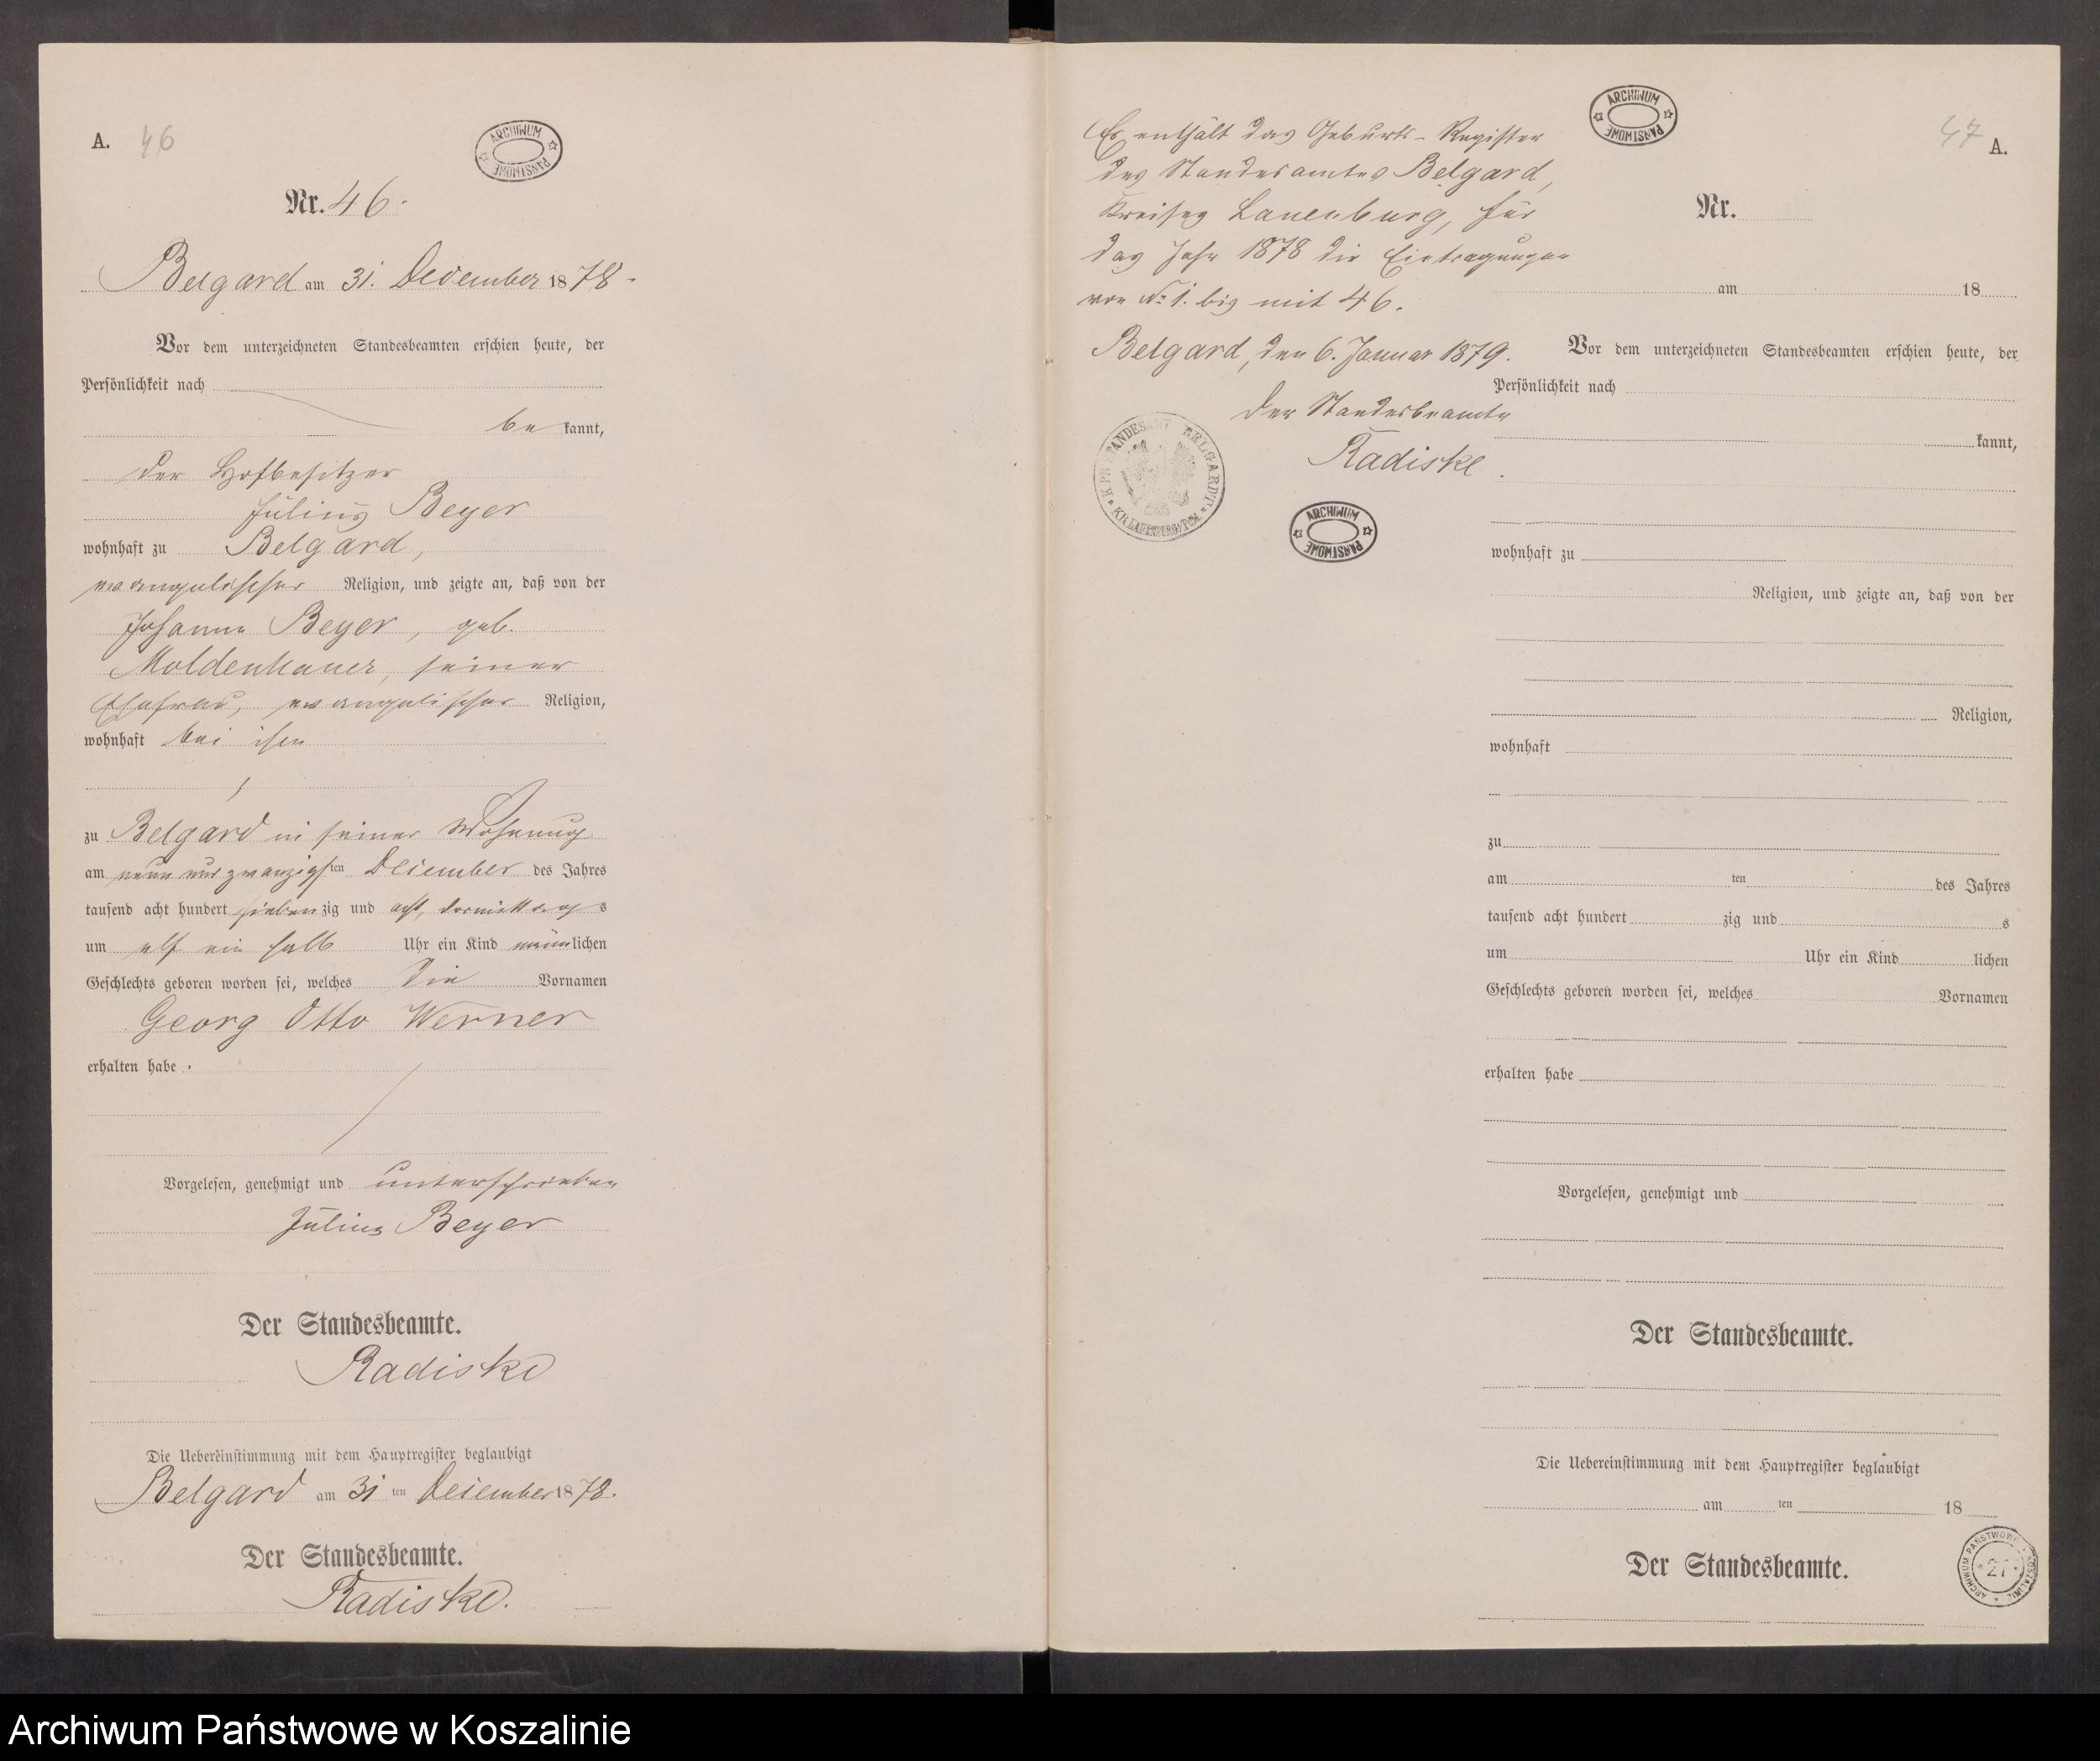 A. 46
ARCHIWUM PAŃSTWOWE
Nr. 46.
Belgard am 31. December 1878.
Vor dem unterzeichneten Standesbeamten erschien heute, der
Persönlichkeit nach
be kannt,
der Hofbesitzer
Julius Beyer
wohnhaft zu Belgard,
evangelischer Religion, und zeigte an, daß von der
Johanne Beyer, geb.
Moldenhauer, seiner
Ehefrau, evangelischer Religion,
wohnhaft bei ihm
zu Belgard in seiner Wohnung
am neun und zwanzigsten December des Jahres
tausend acht hundert siebenzig und acht, Vormittags
um elf ein halb Uhr ein Kind männlichen
Geschlechts geboren worden sei, welches die Vornamen
Georg Otto Werner
erhalten habe.
Vorgelesen, genehmigt und unterschrieben
Julius Beyer
Der Standesbeamte.
Radiske
Die Uebereinstimmung mit dem Hauptregister beglaubigt
Belgard am 31 ten December 1878.
Der Standesbeamte.
Radiske.
Es enthält das Geburts-Register
des Standesamtes Belgard,
Kreises Lauenburg, für
das Jahr 1878 die Eintragungen
von No 1. bis mit 46.
Belgard, den 6. Januar 1879.
Der Standesbeamte
Radiske.
K. PR. STANDESAMT BELGARD
KR. LAUENBURG I/POM.
ARCHIWUM PAŃSTWOWE
ARCHIWUM PAŃSTWOWE
47 A.
Nr.
am 18
Vor dem unterzeichneten Standesbeamten erschien heute, der
Persönlichkeit nach
kannt,
wohnhaft zu
Religion, und zeigte an, daß von der
Religion,
wohnhaft
zu
am ten des Jahres
tausend acht hundert zig und s
um Uhr ein Kind lichen
Geschlechts geboren worden sei, welches Vornamen
erhalten habe
Vorgelesen, genehmigt und
Der Standesbeamte.
Die Uebereinstimmung mit dem Hauptregister beglaubigt
am ten 18
Der Standesbeamte.
ARCHIWUM PAŃSTWOWE KOSZALINIE
27
Archiwum Państwowe w Koszalinie